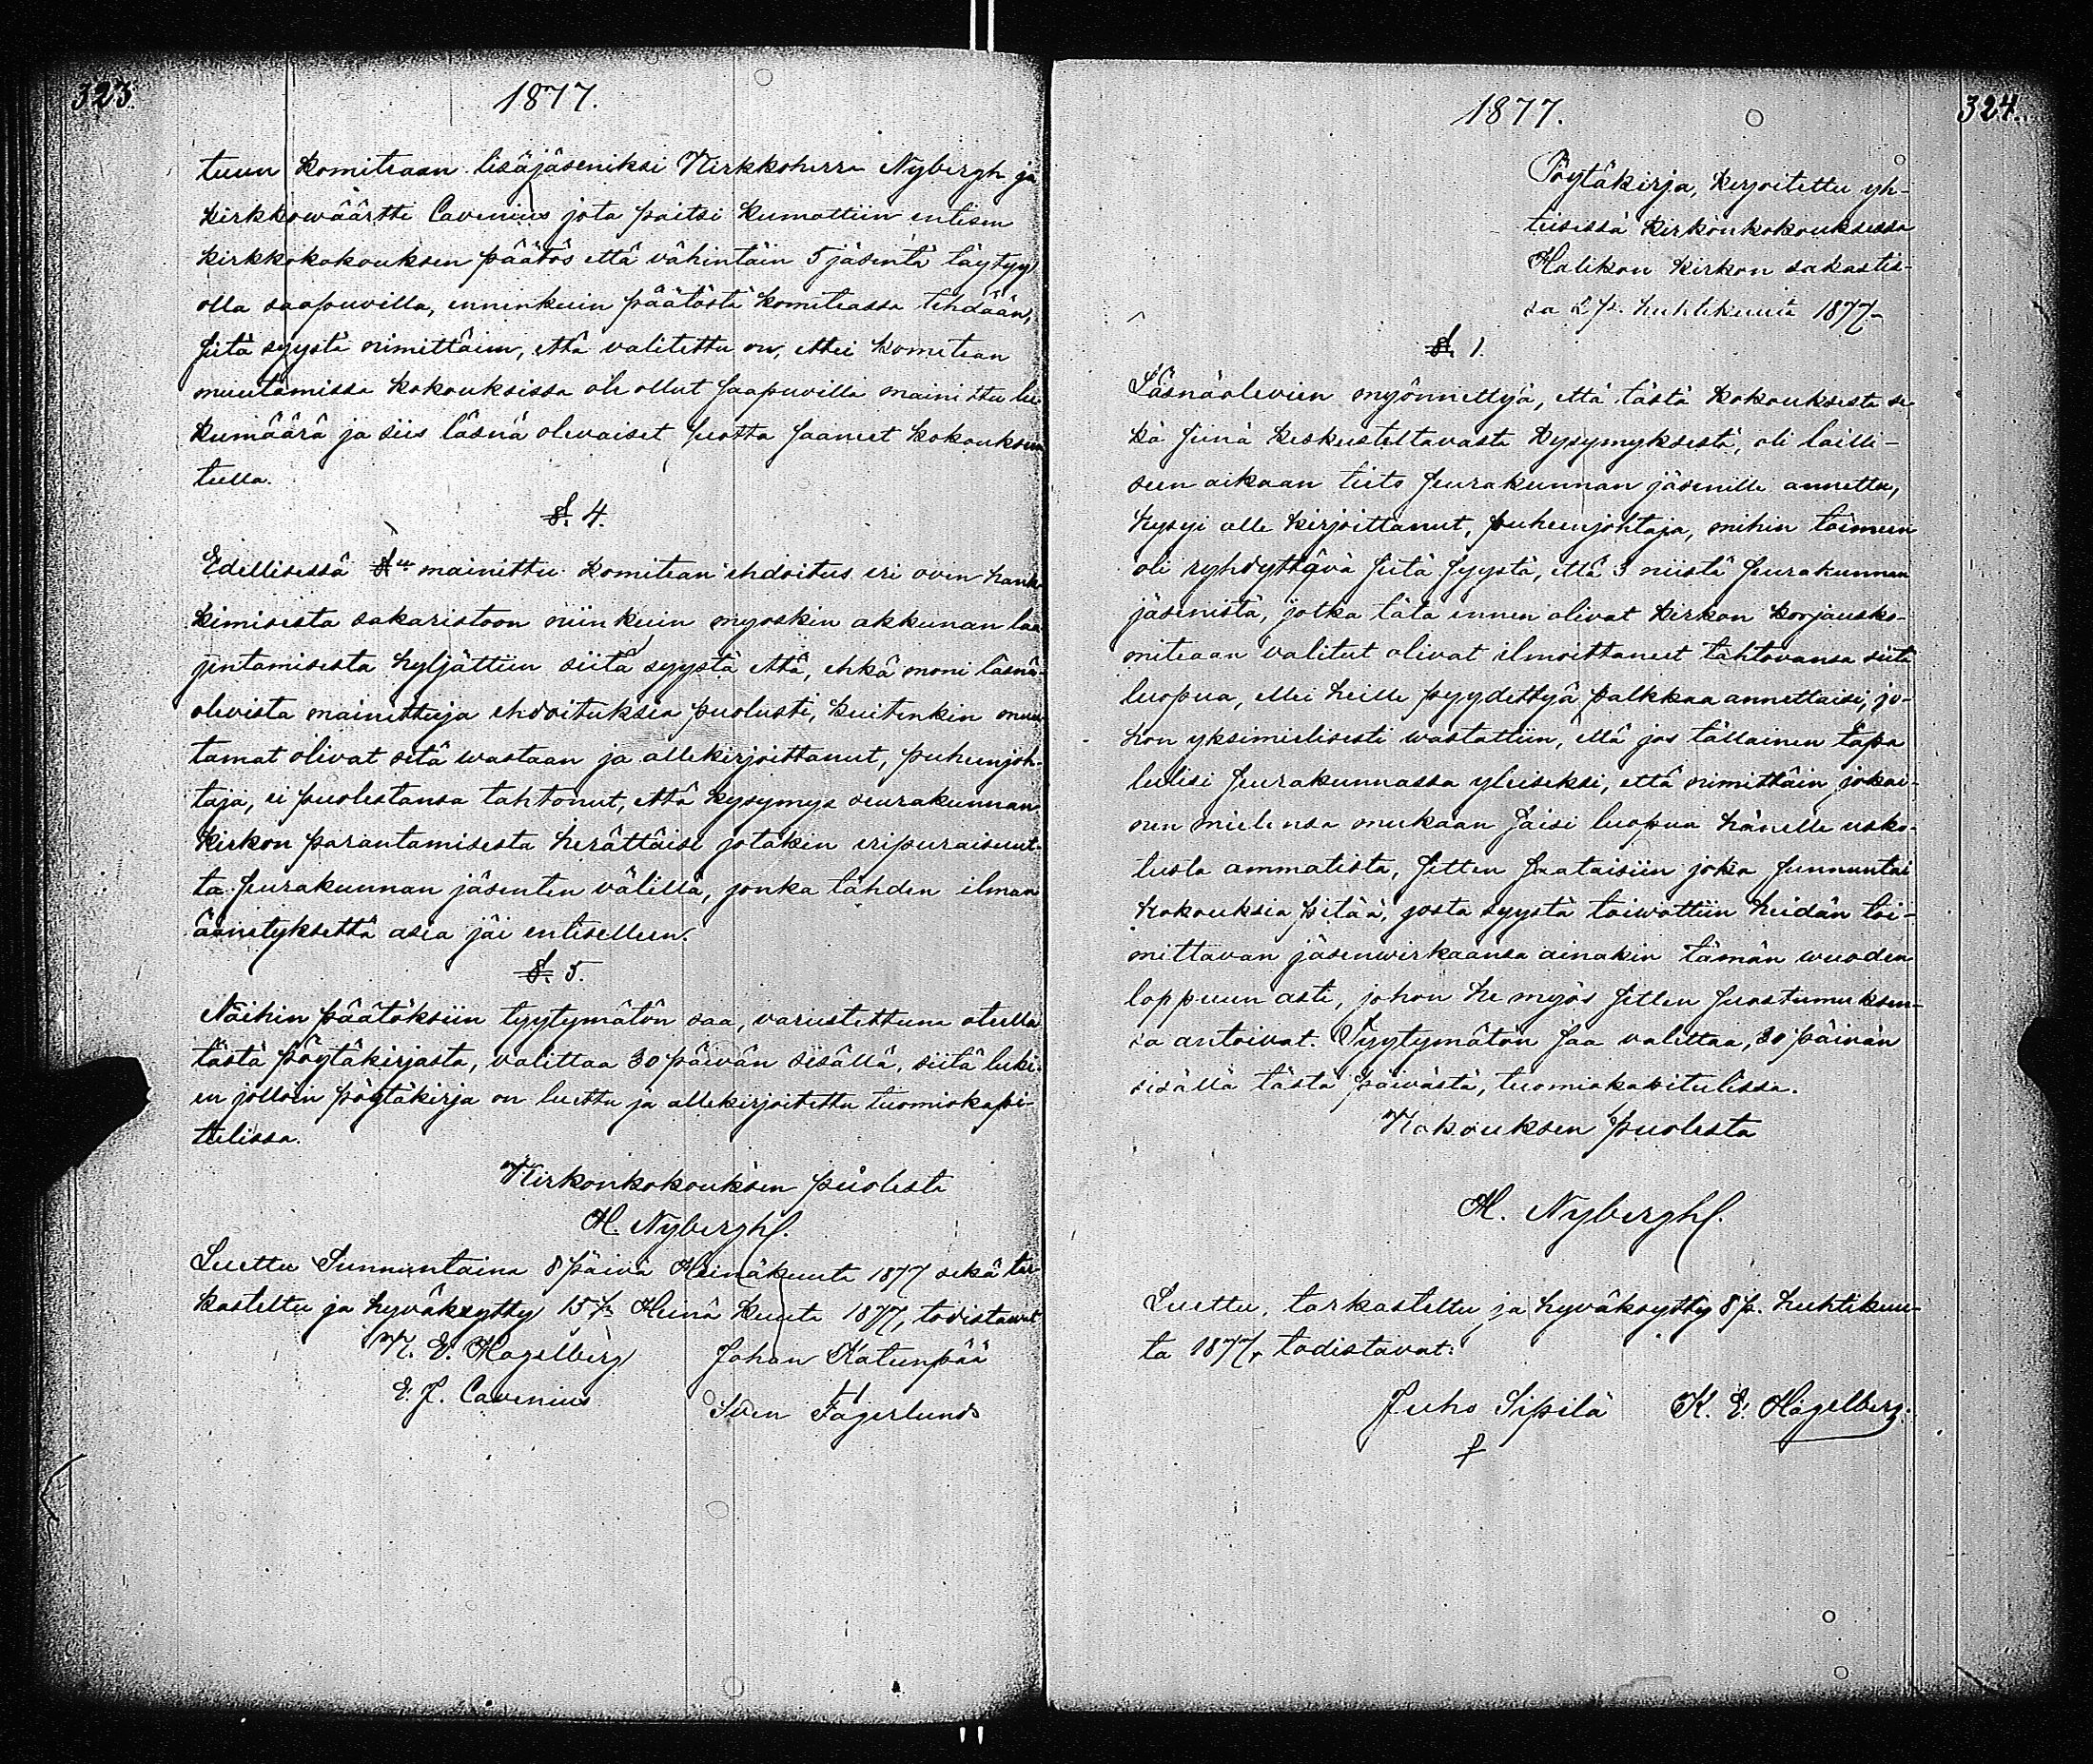 323
1877.
tuun komiteaan lisäjäseniksi Kirkkoherra Nybergh ja
kirkkowäärtti Cavenius jota paitsi kumottiin entisen
kirkkokokouksen päätös että vähintäin 5 jäsentä täytyy
olla saapuvilla, ennenkuin päätöstä komiteassa tehdään,
siitä syystä nimittäin, että valitettu on, ettei komitean
muutamissa kokouksissa ole ollut saapuvilla mainittu lu-
kumäärä ja siis läsnä olevaiset suotta saaneet kokoukseen
tulla.
§. 4.
Edellisessä §ssä mainittu komitean ehdoitus eri oven hank-
kimisesta sakaristoon niinkuin myöskin akkunan laa-
jentamisesta hyljättiin siitä syystä että, ehkä moni läsnä-
olevista mainittuja ehdoituksia puolusti, kuitenkin muu-
tamat olivat sitä wastaan ja allekirjoittanut, puheenjoh-
taja, ei puolestansa tahtonut, että kysymys seurakunnan
kirkon parantamisesta herättäisi jotakin eripuraisuut-
ta seurakunnan jäsenten välillä, jonka tähden ilman
äänetyksettä asia jäi entiselleen.
§. 5.
Näihin päätöksiin tyytymätön saa, varustettuna otteella
tästä pöytäkirjasta, valittaa 30 päivän sisällä, siitä luki-
en jolloin pöytäkirja on luettu ja allekirjoitettu tuomiokapi-
tulissa.
Kirkonkokouksen puolesta
H. Nybergh.
Luettu Sunnuntaina 8 päivä Heinäkuuta 1877 sekä tar-
kasteltu ja hyväksytty 15 p. Heinäkuuta 1877, todistavat
K. E. Hagelberg Johan Katunpää
E. J. Cavenius Sven Fagerlund
324.
1877.
Pöytäkirja, kirjoitettu yh-
teisessä kirkonkokouksessa
Halikon kirkon sakastis-
sa 2 p. huhtikuuta 1877.
§. 1.
Läsnäolevien myönnettyä, että tästä kokouksesta se-
kä siinä keskusteltavasta kysymyksestä, oli lailli-
seen aikaan tieto seurakunnan jäsenille annettu,
kysyi alle kirjoittanut, puheenjohtaja, mihin toimeen
oli ryhdyttävä siitä syystä, että 3 niistä seurakunnan
jäsenistä, jotka tätä ennen olivat kirkon korjausko-
miteaan valitut olivat ilmoittaneet tahtovansa siitä
luopua, ellei heille pyydettyä palkkaa annettaisi, jo-
hon yksimielisesti wastattiin, että jos tällainen tapa
tulisi seurakunnassa yleiseksi, että nimittäin jokai-
nen mielensä mukaan saisi luopua hänelle usko-
tusta ammatista, sitten saataisiin joka sunnuntai
kokouksia pitää, josta syystä toiwottiin heidän toi-
mittavan jäsenwirkaansa ainakin tämän wuoden
loppuun asti, johon he myös sitten suostumuksen-
sa antoivat. Tyytymätön saa valittaa, 30 päivän
sisällä tästä päivästä, tuomiokapitulissa.
Kokouksen puolesta
H. Nybergh.
Luettu, tarkasteltu ja hyväksytty 8 p. huhtikuu-
ta 1877, todistavat:
Juho Sipilä K. E. Hagelberg.